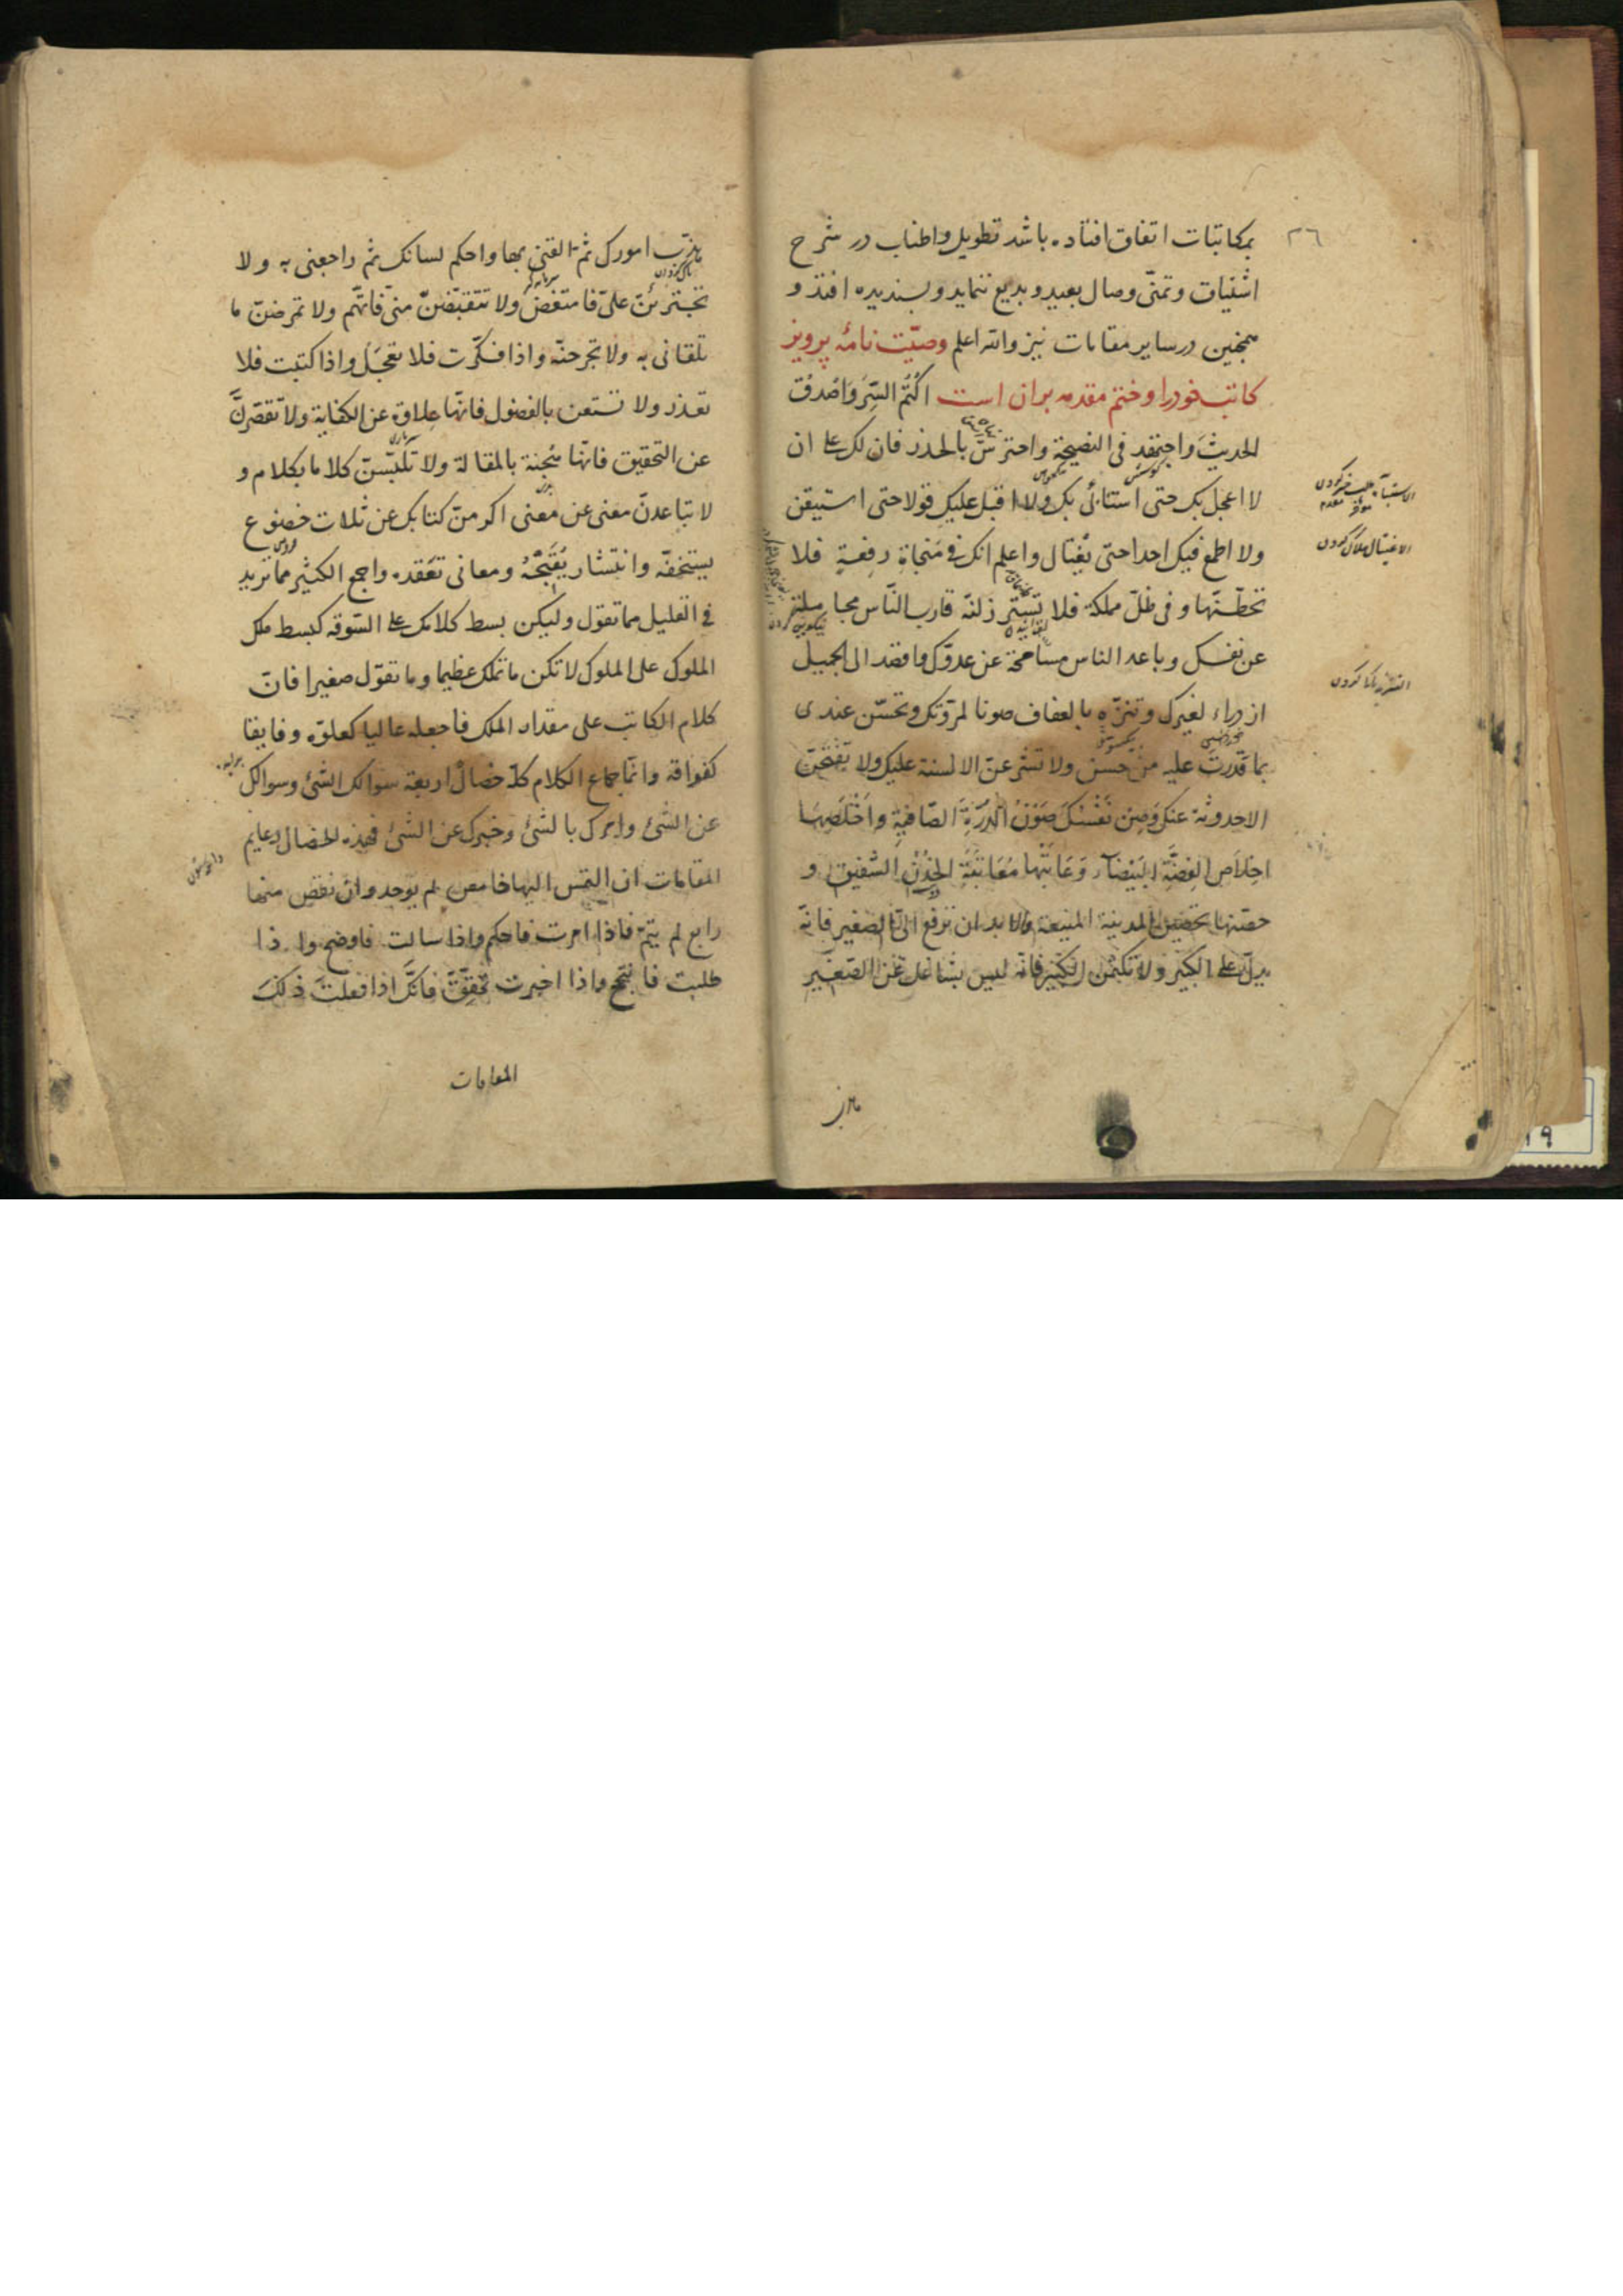 ٢٦
بمکاتبات اتفاق افتاده باشد تطویل و اطناب در شرح
اشتیاق و تمنّی وصال بعید و بدیع ننماید و پسندیده افتد و
همچنین در سایر مقامات نیز والله اعلم وصیّت نامهٔ پرویز
کاتب خود را و ختم مقدمه بران است اکْتُمِ السِّرَ وَاصْدُقْ
الحدیثَ واجتهد فی النصیحة واحترسّ بالحذر فان لک علی ان
لا اعجل بک حتی استانی بک ولا اقبل علیک قولا حتی استیقن
ولا اطمع فیک احدا حتی یُغتال واعلم انک فی مَنجاةِ رِفعةٍ فلا
تحطّنّها و فی ظلّ مملکة فلا تستز زلنّه قارب النّاس مجاملة
عن نفسک وباعد الناس مسامحة عن عدوّک واقصد الی الجمیل
ازدراء لغیرک وتنزّه بالعفاف صونا لمروّتک وتحسّن عندی
بما قدرتَ علیه من حسن ولا تشرعنّ الالسنة علیک ولا یقبحنّ
الاحدوثة عنک وَصُنْ نَفْسَکَ صَوْنَ الدُّرَّةِ الصّافیةِ واَخْلِصْهَا
اِخلَاصَ الفِضَّةِ البَیْضَآء وَعَاتِبْها مُعَاتَبَةَ الشفیق و
حصّنها تحصین المدینة المنیعة ولا بدان ترفع الیّ الصغیر فانّه
یدلّ علی الکبیر ولا تکتمن الکبیر فانّه لیس بشاغل عن الصّغیر
الاغتیال هلاک کردن
هذّب امورک ثم القنی بها واحکم لسانک ثم راجعنی به ولا
تجترئنّ علیّ فامتعض ولا تنقبضنّ منّی فاتّهم ولا تمرضنّ ما
تلقانی به ولا تجرحنّه واذا فکّرت فلا تعجل واذا کتبت فلا
تعذر ولا تستعن بالفضول فانّها علاوة عن الکفایة ولا تقصّرنَّ
عن التحقیق فانّها هُجنة بالمقالة ولا تلبّسنّ کلاما بکلام و
لا تباعدنّ معنی عن مَعنی اکرمنّ کتابک عن ثلاث خضوع
یستخفّه وانتشار یُقَبِّحُهُ ومعانی تعقده واجمع الکثیر مما ترید
فی القلیل مما تقول ولیکن بسط کلامک علی السّوقه کبسط ملک
الملوک علی الملوک لا تکن ما تملک عظیما وما تقوّل صغیرا فانّ
کلام الکاتب علی مقدار الملک فاجعله عالیا کعلوّه وفایقا
کفواقه وانّما جماع الکلام کلّه خصال اربعة سوالک الشئ وسوالک
عن الشئ وامرک بالشئ وخبرک عن الشئ فهذه الخصال دعایم
المقامات ان التمس الیها خامس لم یوجد وان نقص منها
رابع لم یتمّ فاذا امرت فاحکم واذا سالت فاوضح واذا
طلبت فانجح واذا اخبرت فحقّق فانکَ اذا فعلتَ ذلکَ
المقامات